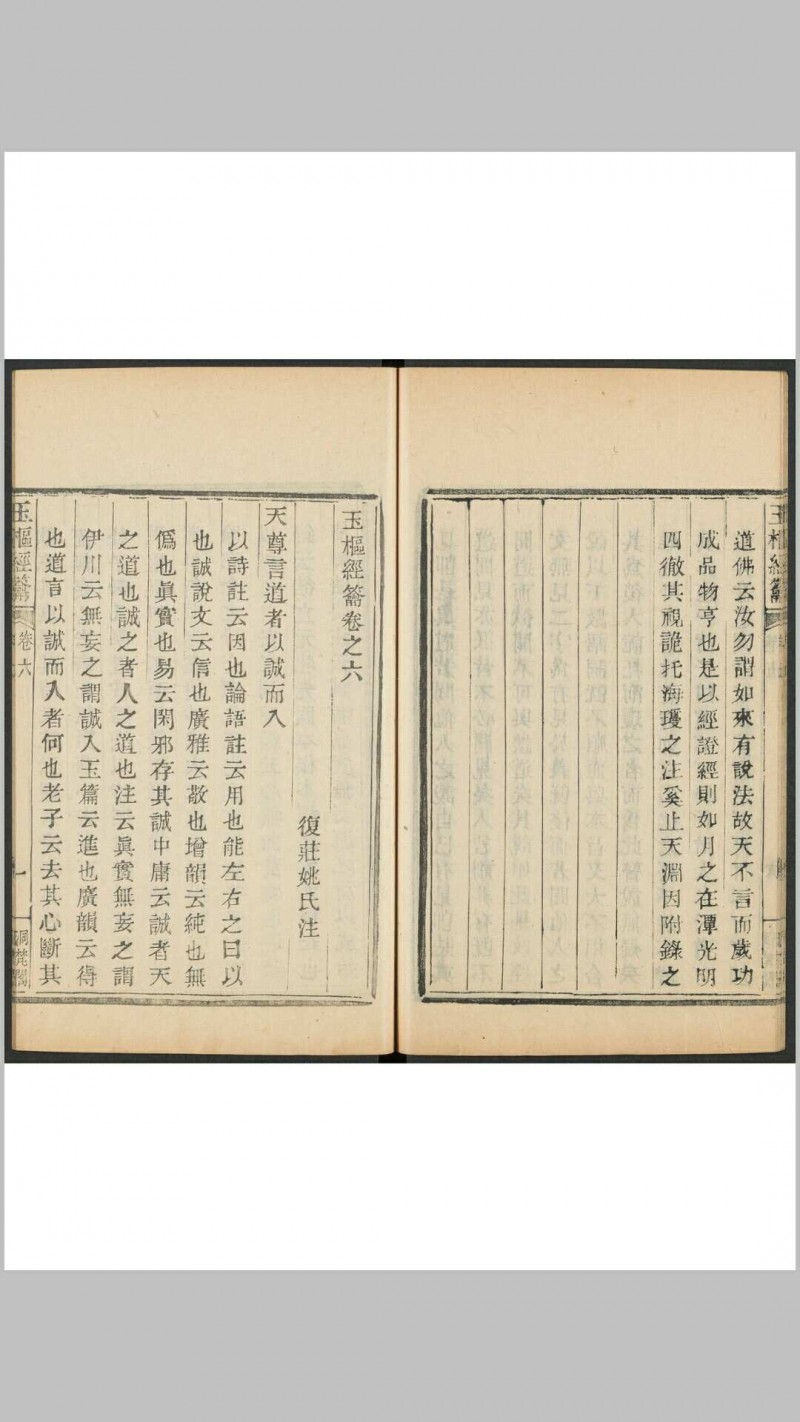 道佛云汝勿謂如來有說法故天不言而歲功
成品物亨也是以經證經則如月之在潭光明
四徹其視詭托海瓊之注奚止天淵因附錄之
玉樞經籥卷之六
復莊姚氏注
天尊言道者以誠而入
以詩註云因也論語註云用也能左右之曰以
也誠說文云信也廣雅云敬也增韻云純也無
僞也眞實也易云閑邪存其誠中庸云誠者天
之道也誠之者人之道也注云眞實無妄之謂
伊川云無妄之謂誠入玉篇云進也廣韻云得
也道言以誠而入者何也老子云去其心斷其
玉樞經籥
卷六
一